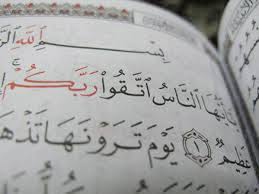 بِسْمِ ٱللَّهِ
يَـٰٓأَيُّهَا ٱلنَّاسُ ٱتَّقُوا۟ رَبَّكُمْ ۚ
عَظِيمٌ ١ يَوْمَ تَرَوْنَهَا